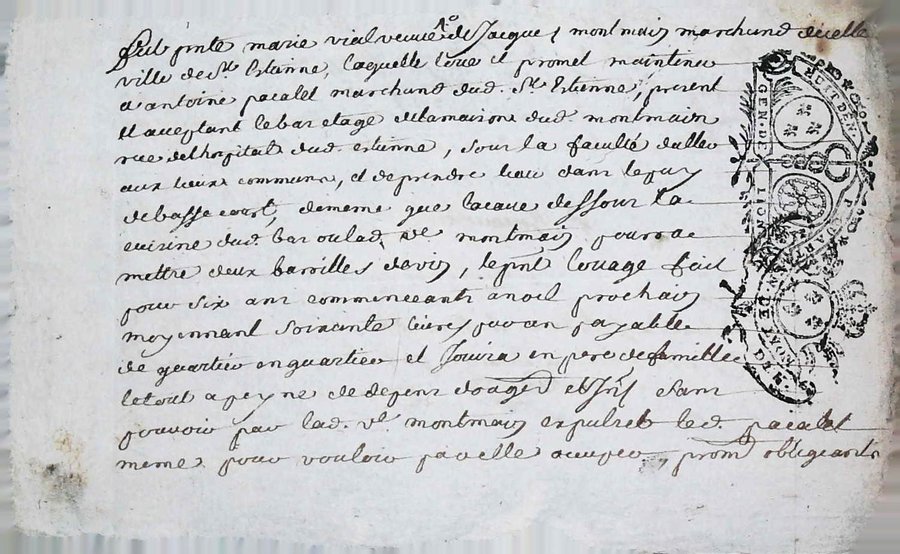 fut pnte marie vial veuve de Jacques montmain marchand decelle
ville de St. Estienne, laquelle loue et promet maintenir
a antoine pacalet marchand dud. St. Estienne, present
et acceptant le bas etage delamaison dud. montmain
rue del'hospital dud. estienne, sous la faculté daller
aux lieux communs, et deprendre leau dans lepuy
debasse court, dememe que lacave dessous la
cuisine dud. bas oulad. ve. montmain pourra
mettre deux barilles devin, lepnt louage fait
pour six ans commenceants anoel prochain
moyennant soixante livres paran payable
de quartier enquartier et Jouira en pere defamille
letout apeyne dedepens sans
pouvoir par lad. ve. montmain expulser led. pacalet
meme pour vouloir parelle occuper, prom obligeants
GEN. DE LION
HUIT DEN.
P. QUAR